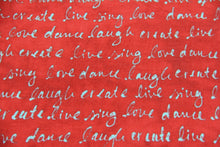 create live sing love dance
love dance laugh create
create live sing love dance
sing love dance, laugh create
laugh create live sing
live sing love dance
dance laugh create live